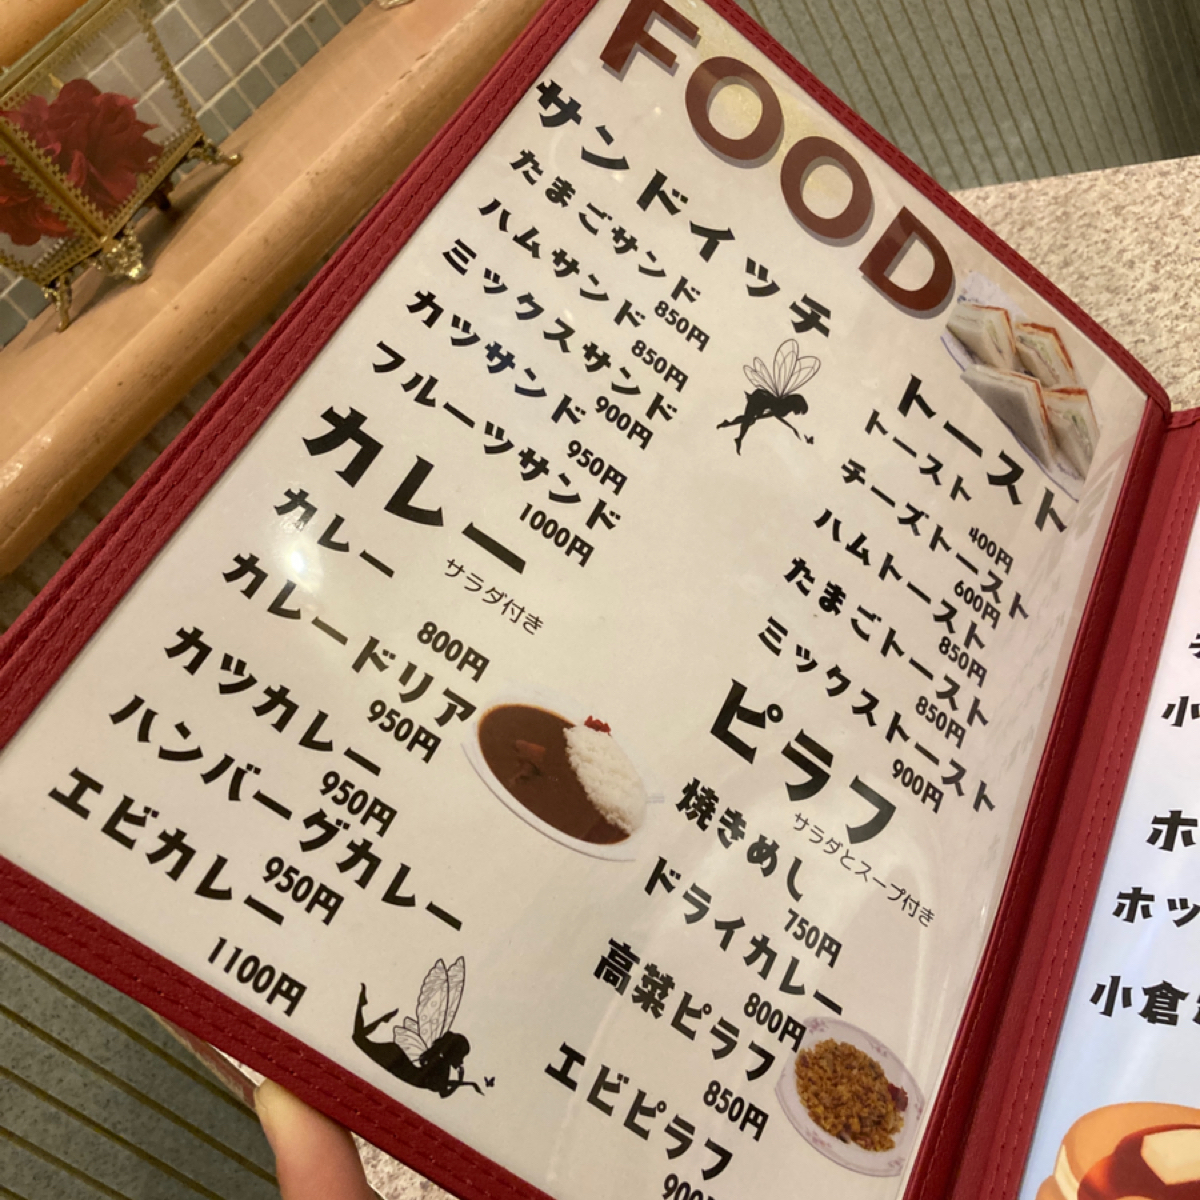 FOOD
サンドイッチ
たまごサンド
850円
ハムサンド
850円
ミックスサンド
900円
カツサンド
950円
フルーツサンド
1000円
カレー
サラダ付き
カレー
800円
カレードリア
950円
カツカレー
950円
ハンバーグカレー
950円
エビカレー
1100円
トースト
トースト
400円
チーズトースト
600円
ハムトースト
850円
たまごトースト
850円
ミックストースト
900円
ピラフ
サラダとスープ付き
焼きめし
750円
ドライカレー
800円
高菜ピラフ
850円
エビピラフ
900円
小
ホ
ホッ
小倉